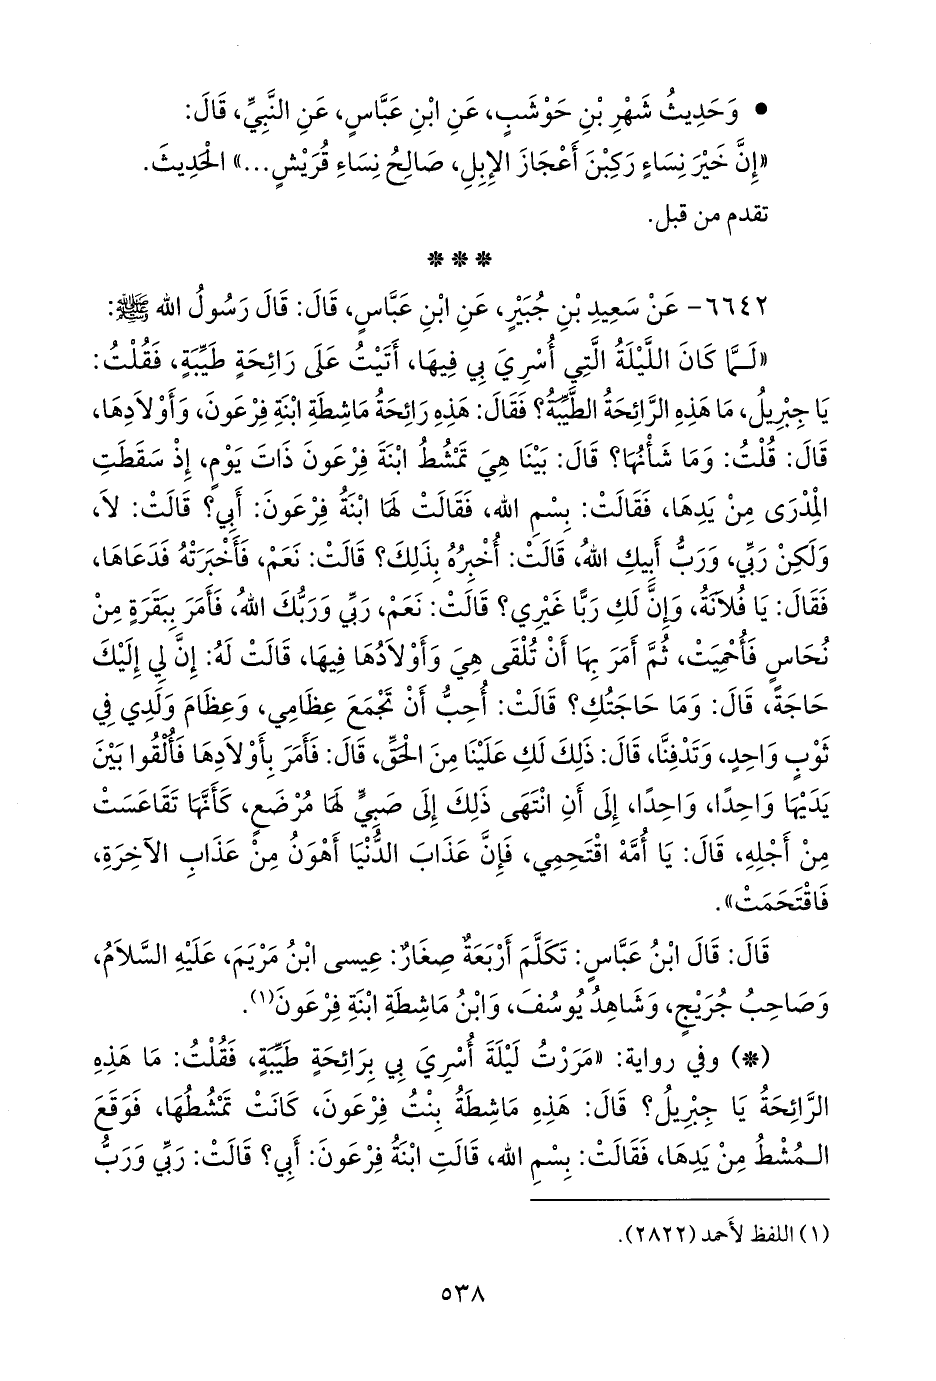 • وَحَدِيثُ شَهْرِ بْنِ حَوْشَبٍ، عَنِ ابْنِ عَبَّاسٍ، عَنِ النَّبِيِّ، قَالَ:
«إِنَّ خَيْرَ نِسَاءٍ رَكِبْنَ أَعْجَازَ الإِبِلِ، صَالِحُ نِسَاءِ قُرَيْشٍ...» الْحَدِيثَ.
تقدم من قبل.
* * *
٦٦٤٢- عَنْ سَعِيدِ بْنِ جُبَيْرٍ، عَنِ ابْنِ عَبَّاسٍ، قَالَ: قَالَ رَسُولُ الله ﷺ:
«لَـمَّا كَانَ اللَّيْلَةُ الَّتِي أُسْرِيَ بِي فِيهَا، أَتَيْتُ عَلَى رَائِحَةٍ طَيِّبَةٍ، فَقُلْتُ:
يَا جِبْرِيلُ، مَا هَذِهِ الرَّائِحَةُ الطَّيِّبَةُ؟ فَقَالَ: هَذِهِ رَائِحَةُ مَاشِطَةِ ابْنَةِ فِرْعَونَ، وَأَوْلاَدِهَا،
قَالَ: قُلْتُ: وَمَا شَأْنُهَا؟ قَالَ: بَيْنَا هِيَ تَمْشُطُ ابْنَةَ فِرْعَونَ ذَاتَ يَوْمٍ، إِذْ سَقَطَتِ
الْمِدْرَى مِنْ يَدِهَا، فَقَالَتْ: بِسْمِ الله، فَقَالَتْ لَهَا ابْنَةُ فِرْعَونَ: أَبِي؟ قَالَتْ: لاَ،
وَلَكِنْ رَبِّي، وَرَبُّ أَبِيكِ اللهُ، قَالَتْ: أُخْبِرُهُ بِذَلِكَ؟ قَالَتْ: نَعَمْ، فَأَخْبَرَتْهُ فَدَعَاهَا،
فَقَالَ: يَا فُلاَنَةُ، وَإِنَّ لَكِ رَبًّا غَيْرِي؟ قَالَتْ: نَعَمْ، رَبِّي وَرَبُّكَ اللهُ، فَأَمَرَ بِبَقَرَةٍ مِنْ
نُحَاسٍ فَأُحْمِيَتْ، ثُمَّ أَمَرَ بِهَا أَنْ تُلْقَى هِيَ وَأَوْلاَدُهَا فِيهَا، قَالَتْ لَهُ: إِنَّ لِي إِلَيْكَ
حَاجَةً، قَالَ: وَمَا حَاجَتُكِ؟ قَالَتْ: أُحِبُّ أَنْ تَجْمَعَ عِظَامِي، وَعِظَامَ وَلَدِي فِي
ثَوْبٍ وَاحِدٍ، وَتَدْفِنَّا، قَالَ: ذَلِكَ لَكِ عَلَيْنَا مِنَ الْحَقِّ، قَالَ: فَأَمَرَ بِأَوْلاَدِهَا فَأُلْقُوا بَيْنَ
يَدَيْهَا وَاحِدًا، وَاحِدًا، إِلَى أَنِ انْتَهَى ذَلِكَ إِلَى صَبِيٍّ لَهَا مُرْضَعٍ، كَأَنَّهَا تَقَاعَسَتْ
مِنْ أَجْلِهِ، قَالَ: يَا أُمَّهْ اقْتَحِمِي، فَإِنَّ عَذَابَ الدُّنْيَا أَهْوَنُ مِنْ عَذَابِ الآخِرَةِ،
فَاقْتَحَمَتْ».
قَالَ: قَالَ ابْنُ عَبَّاسٍ: تَكَلَّمَ أَرْبَعَةٌ صِغَارٌ: عِيسى ابْنُ مَرْيَمَ، عَلَيْهِ السَّلاَمُ،
وَصَاحِبُ جُرَيْجٍ، وَشَاهِدُ يُوسُفَ، وَابْنُ مَاشِطَةِ ابْنَةِ فِرْعَونَ(١).
(*) وفي رواية: «مَرَرْتُ لَيْلَةَ أُسْرِيَ بِي بِرَائِحَةٍ طَيِّبَةٍ، فَقُلْتُ: مَا هَذِهِ
الرَّائِحَةُ يَا جِبْرِيلُ؟ قَالَ: هَذِهِ مَاشِطَةُ بِنْتُ فِرْعَونَ، كَانَتْ تَمْشُطُهَا، فَوَقَعَ
الـمُشْطُ مِنْ يَدِهَا، فَقَالَتْ: بِسْمِ الله، قَالَتِ ابْنَةُ فِرْعَونَ: أَبِي؟ قَالَتْ: رَبِّي وَرَبُّ
(١) اللفظ لأَحمد (٢٨٢٢).
٥٣٨